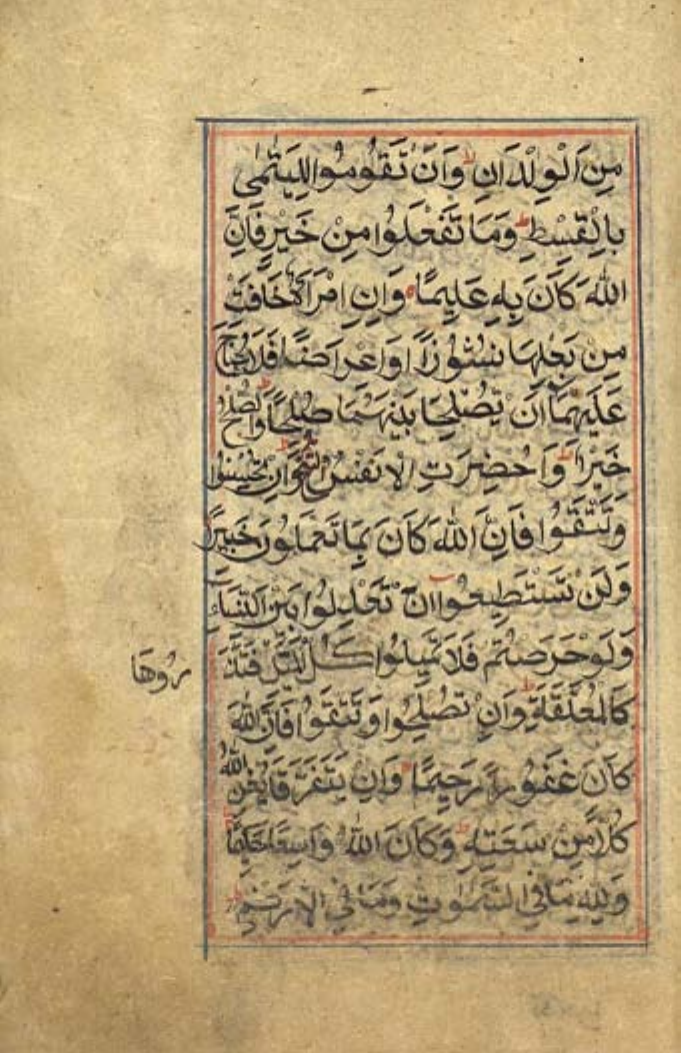 مِنَ الْوِلْدَانِ ۙ وَاَنْ تَقُومُوا لِلْيَتٰمٰى
بِالْقِسْطِ ؕ وَمَا تَفْعَلُوا مِنْ خَيْرٍ فَاِنَّ
اللهَ كَانَ بِهِ عَلِيمًا وَاِنِ امْرَاَةٌ خَافَتْ
مِنْ بَعْلِهَا نُشُوزًا اَوْ اِعْرَاضًا فَلَا جُنَاحَ
عَلَيْهِمَا اَنْ يُصْلِحَا بَيْنَهُمَا صُلْحًا ؕ وَالصُّلْحُ
خَيْرٌ ؕ وَاُحْضِرَتِ الْاَنْفُسُ الشُّحَّ ؕ وَاِنْ تُحْسِنُوا
وَتَتَّقُوا فَاِنَّ اللهَ كَانَ بِمَا تَعْمَلُونَ خَبِيرًا
وَلَنْ تَسْتَطِيعُوا اَنْ تَعْدِلُوا بَيْنَ النِّسَاءِ
وَلَوْ حَرَصْتُمْ فَلَا تَمِيلُوا كُلَّ الْمَيْلِ فَتَذَ
رُوهَا
كَالْمُعَلَّقَةِ ؕ وَاِنْ تُصْلِحُوا وَتَتَّقُوا فَاِنَّ اللهَ
كَانَ غَفُورًا رَحِيمًا وَاِنْ يَتَفَرَّقَا يُغْنِ اللهُ
كُلًّا مِنْ سَعَتِهِ ؕ وَكَانَ اللهُ وَاسِعًا حَكِيمًا
وَلِلهِ مَا فِي السَّمٰوٰتِ وَمَا فِي الْاَرْضِ ؕ